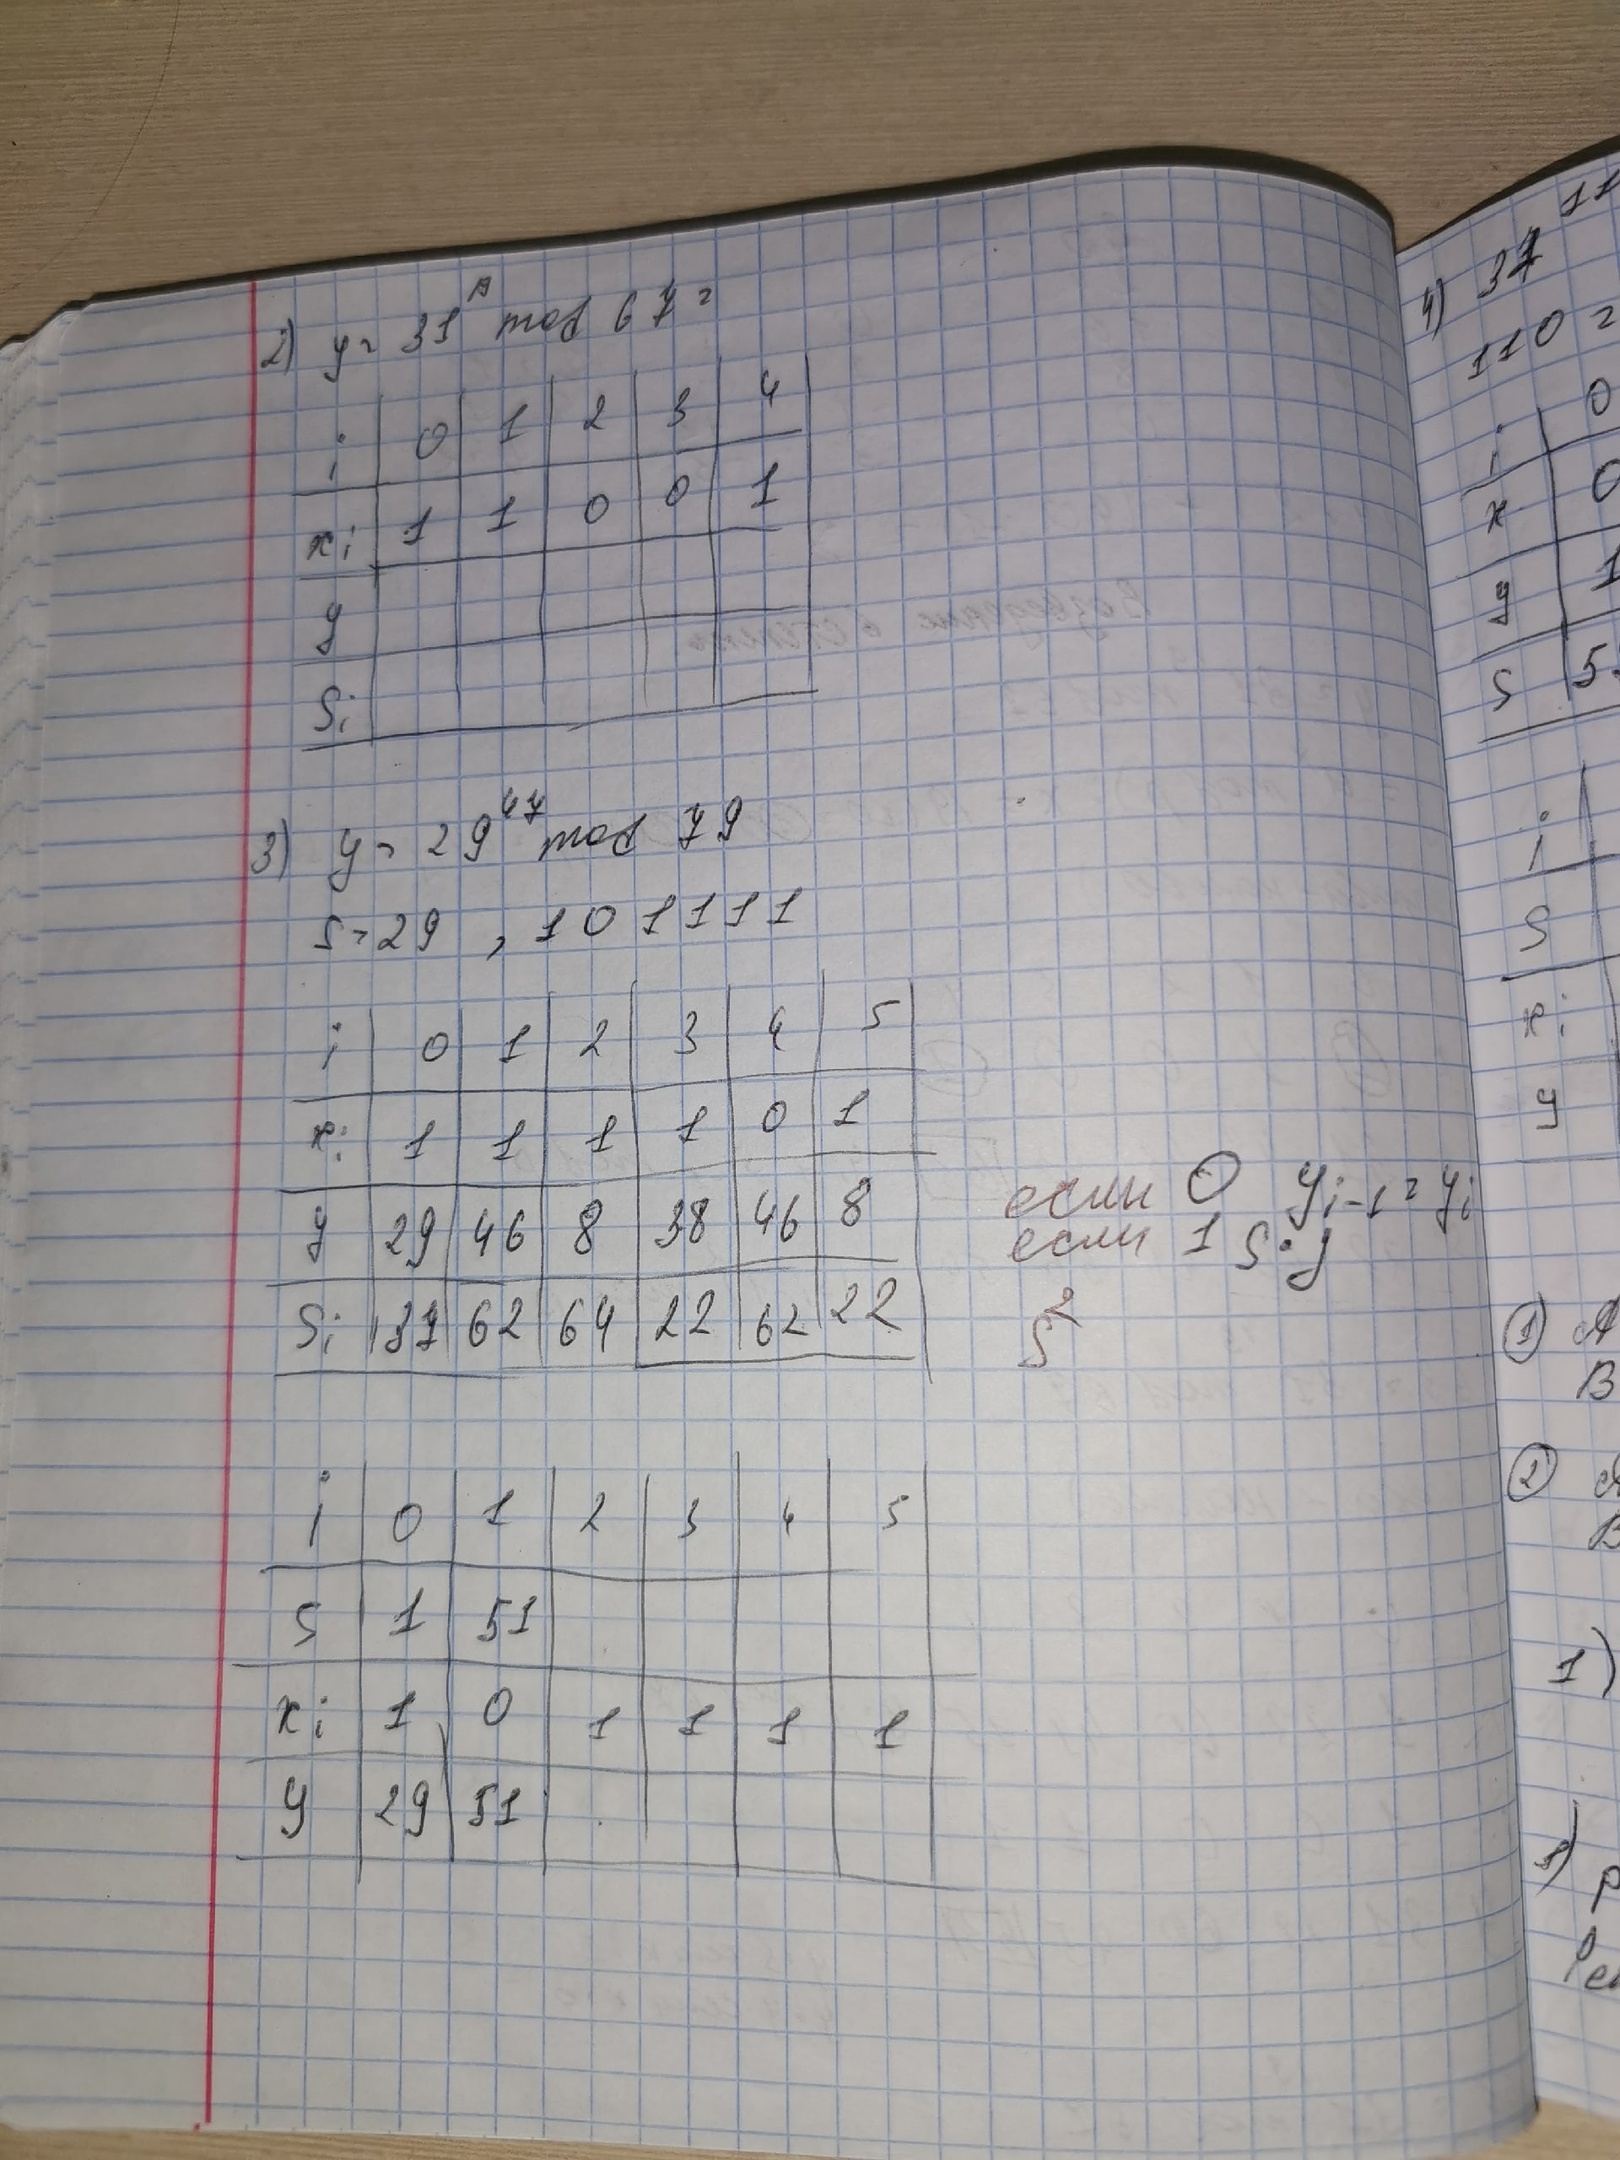 2) y = 31 mod 67 =
i 0 1 2 3 4
xi 1 1 0 0 1
y
Si
3) y = 29^47 mod 79
S = 29 , 101111
i 0 1 2 3 4 5
xi 1 1 1 1 0 1
y 29 46 8 38 46 8
Si 37 62 64 22 62 22
если 0 yi-1 = yi
если 1 S·y
S²
i 0 1 2 3 4 5
S 1 51
xi 1 0 1 1 1 1
y 29 51
4) 37
110 =
i 0
x 0
y 1
S 5
i
S
xi
y
① A
B
②
B
1)
1) P